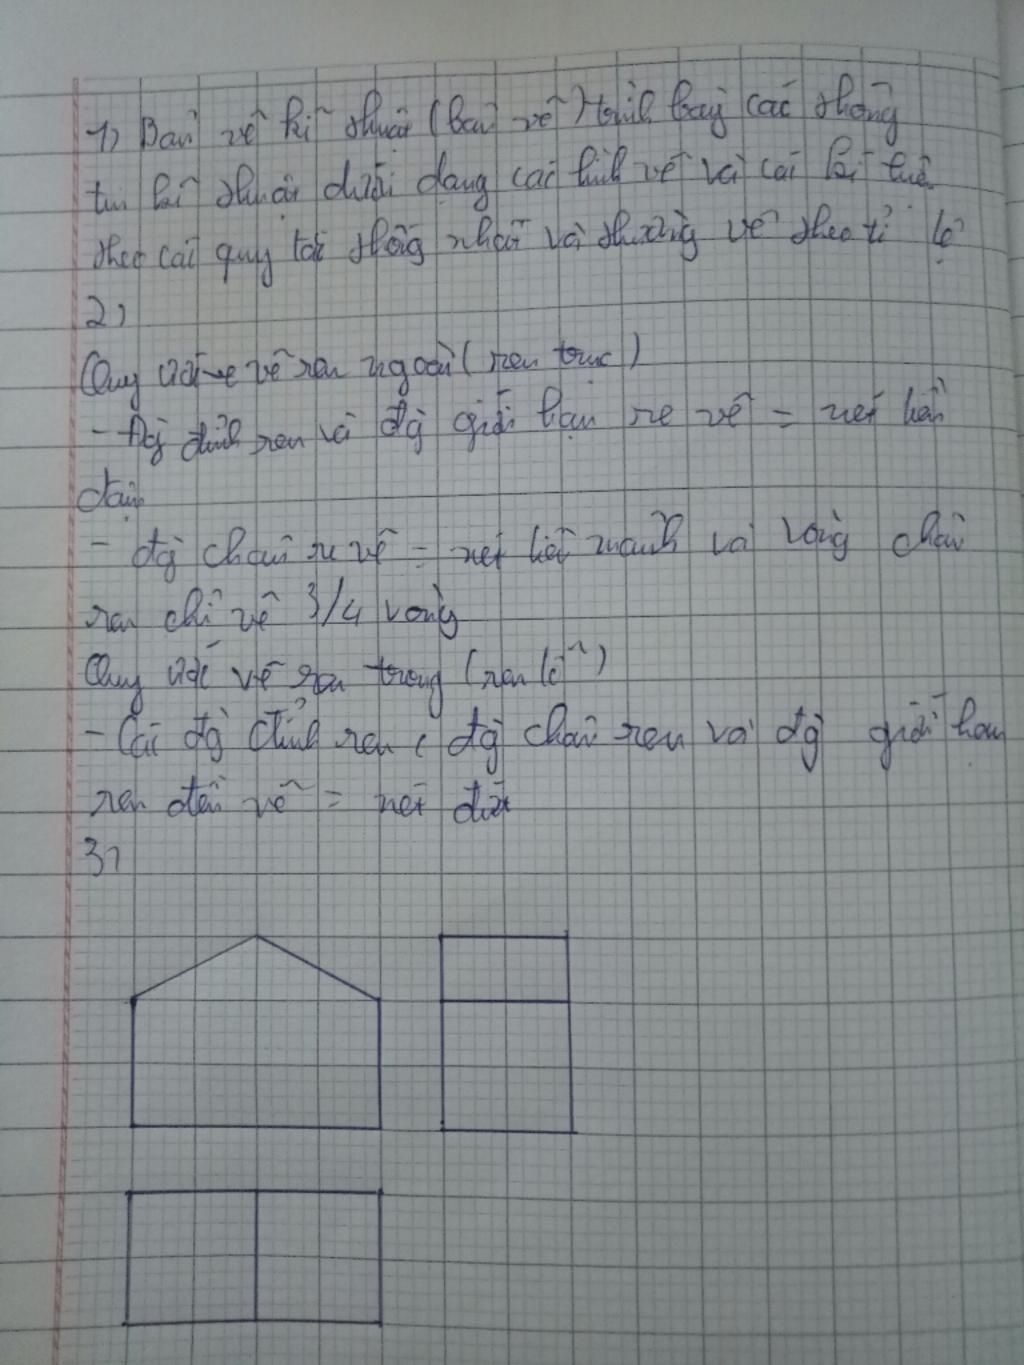 1) Bản vẽ kĩ thuật (bản vẽ) trình bày các thông
tin kĩ thuật dưới dạng các hình vẽ và các kí hiệu
theo các quy tắc thống nhất và thường vẽ theo tỉ lệ
2)
Quy ước vẽ ren ngoài (ren trục)
- Đg đỉnh ren và đg giới hạn re vẽ = nét liền
đậm
- đg chân re vẽ = nét liền mảnh và vòng chân
ren chỉ vẽ 3/4 vòng
Quy ước vẽ ren trong (ren lỗ)
- Các đg đỉnh ren, đg chân ren và đg giới hạn
ren đều vẽ = nét đứt
3)